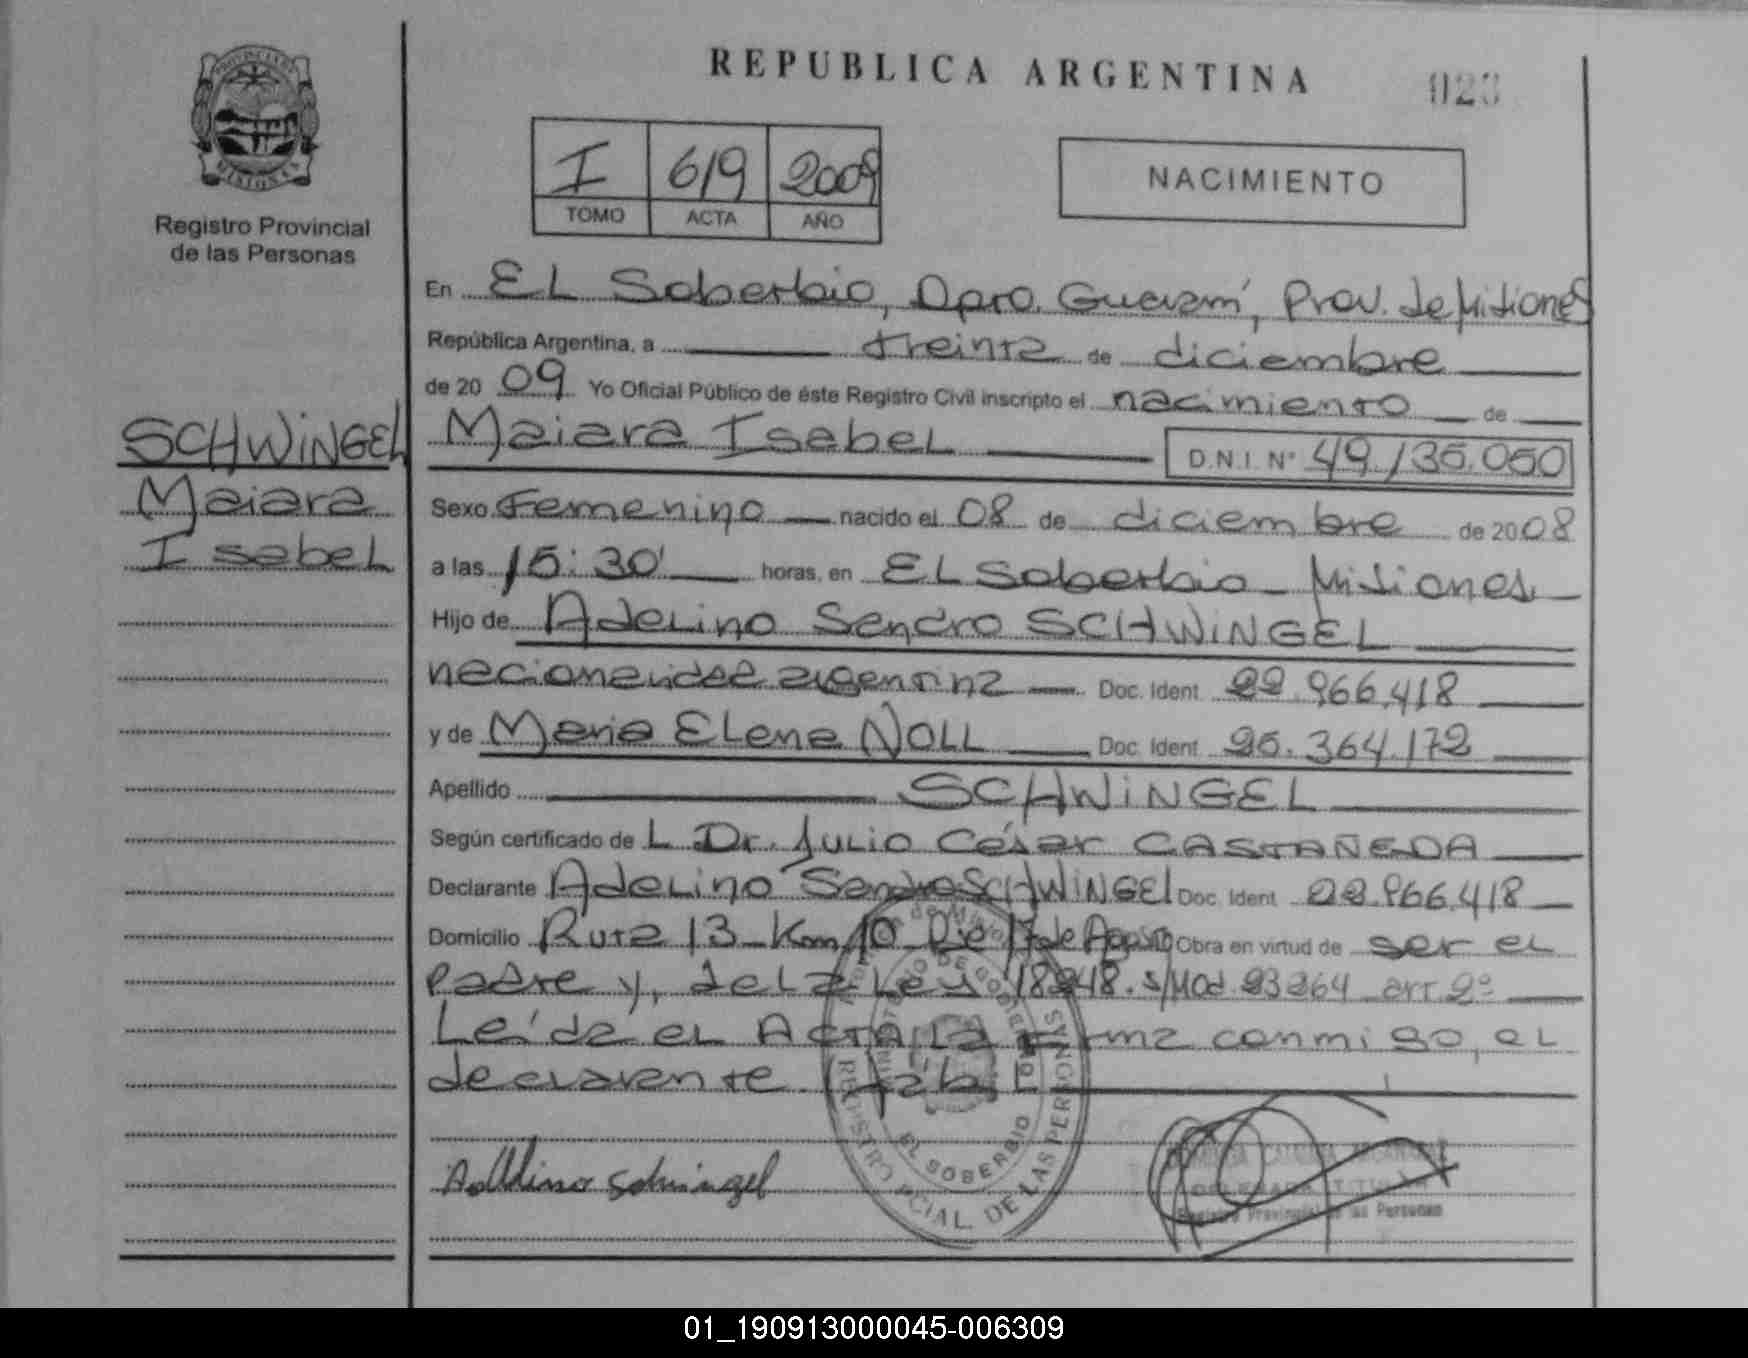 REPUBLICA ARGENTINA
023
PROVINCIA DE MISIONES
Registro Provincial
de las Personas
I 619 2009
TOMO ACTA AÑO
NACIMIENTO
En EL Soberbio, Dpto. Guaraní, Prov. de Misiones
República Argentina, a treinta de diciembre
de 2009 Yo Oficial Público de éste Registro Civil inscripto el nacimiento de
SCHWiNGEL
Maiara
Isabel
Maiara Isabel D.N.I. N° 49.135.050
Sexo Femenino nacido el 08 de diciembre de 2008
a las 15:30 horas, en EL Soberbio - Misiones
Hijo de Adelino Sandro SCHWiNGEL
nacionalidad argentina Doc. Ident. 22.966.418
y de Maria Elena NOLL Doc. Ident. 25.364.172
Apellido SCHWiNGEL
Según certificado de L Dr. Julio César CASTAÑEDA
Declarante Adelino Sandro SCHWiNGEL Doc. Ident. 22.966.418
Domicilio Ruta 13 - Km 10 - Bº 17 de Agosto Obra en virtud de ser el
padre y, de la Ley 18248. s/Mod. 23264 art. 2º
Leída el Acta la firma conmigo, el
declarante
Adelino Schwingel
REGISTRO PCIAL. DE LAS PERSONAS
EL SOBERBIO
Registro Provincial de las Personas
01_190913000045-006309